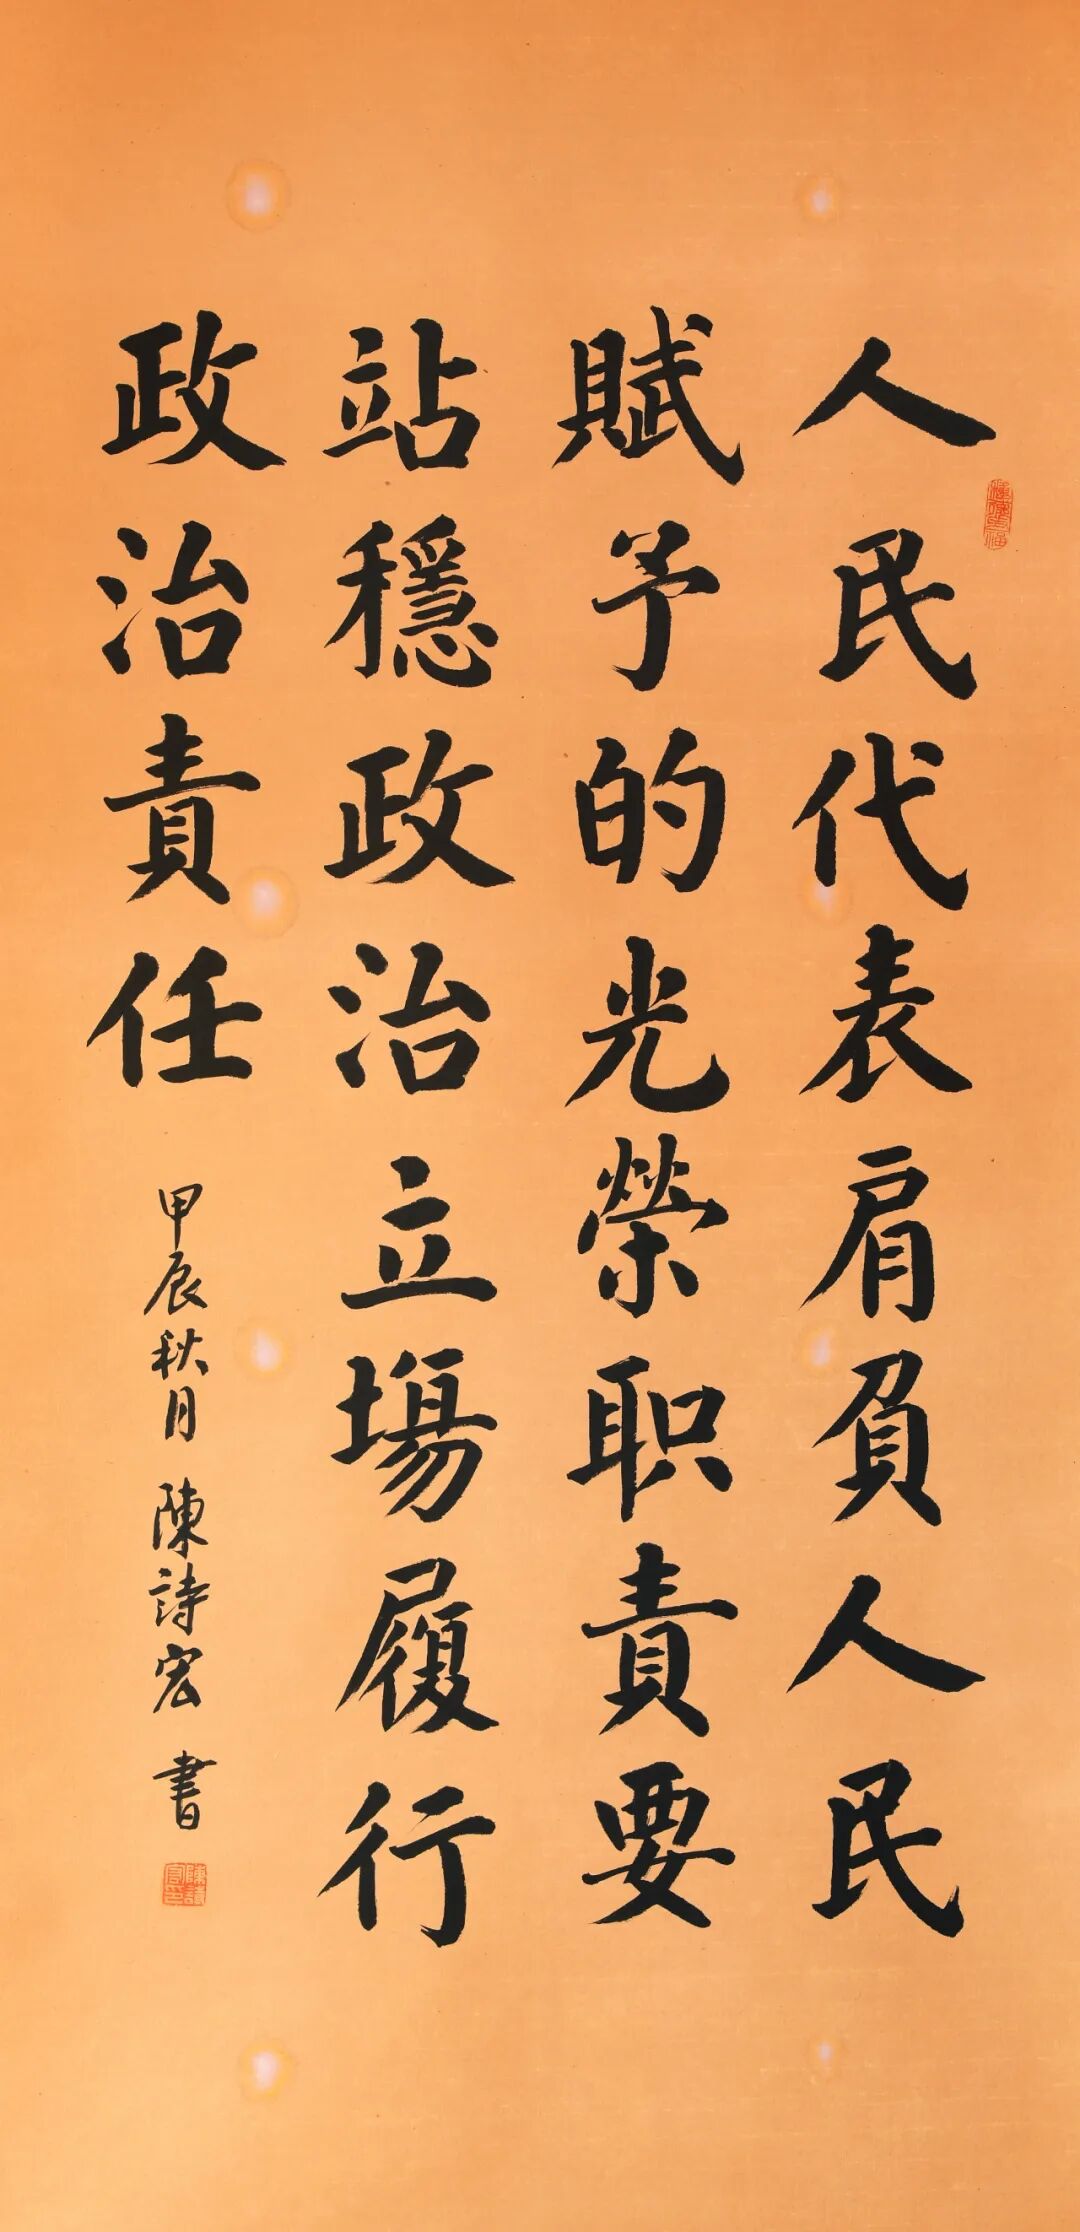 人民代表肩負人民
賦予的光榮职責要
站穩政治立場履行
政治責任
甲辰秋月 陳詩宏 書